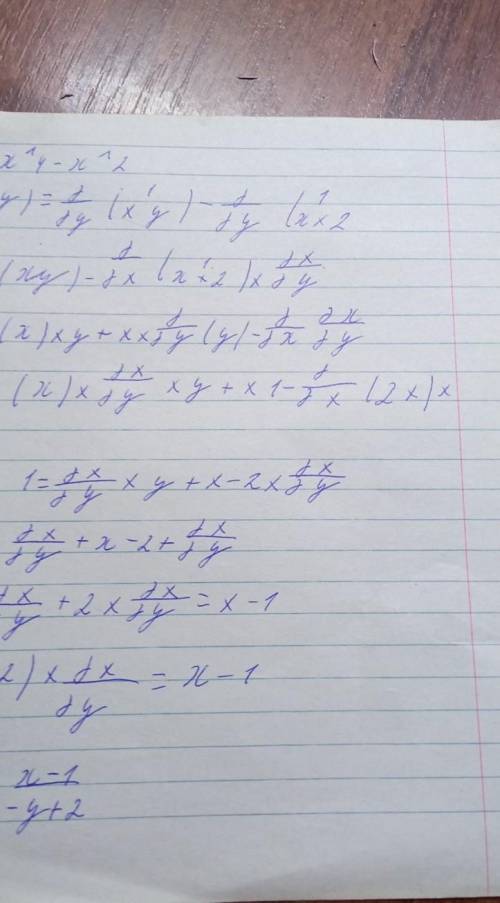 x^y - x^2
y) = d/dy (x^1 y) - d/dy (x^1 x 2
(xy) - d/dx (x^1 x 2) x dx/dy
(x) x y + x x d/dy (y) - d/dx dx/dy
(x) x dx/dy x y + x 1 - d/dx (2x) x
1 = dx/dy x y + x - 2 x dx/dy
dx/dy + x - 2 + dx/dy
dx/y + 2 x dx/dy = x - 1
2) x dx/dy = x - 1
x - 1 / -y + 2